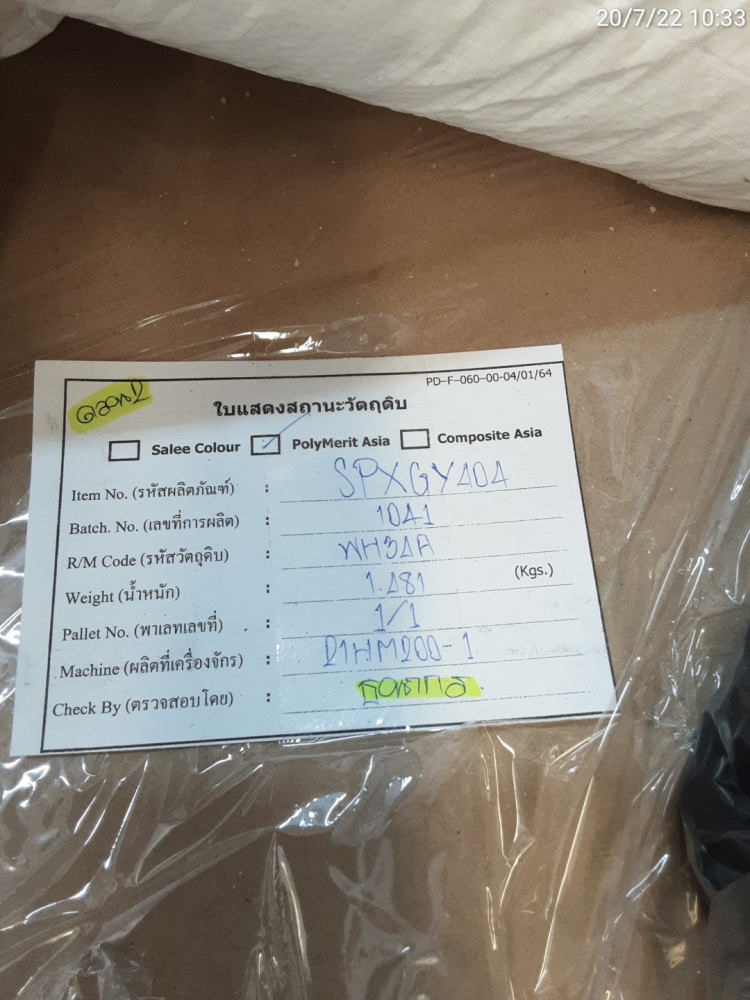 20/7/22 10:33
PD-F-060-00-04/01/64
ใบแสดงสถานะวัตถุดิบ
Salee Colour PolyMerit Asia Composite Asia
Item No. (รหัสผลิตภัณฑ์) : SPXGY404
Batch. No. (เลขที่การผลิต) : 1041
R/M Code (รหัสวัตถุดิบ) : WH34A
Weight (น้ำหนัก) : 1.481 (Kgs.)
Pallet No. (พาเลทเลขที่) : 1/1
Machine (ผลิตที่เครื่องจักร) : 21HM200-1
Check By (ตรวจสอบโดย) :